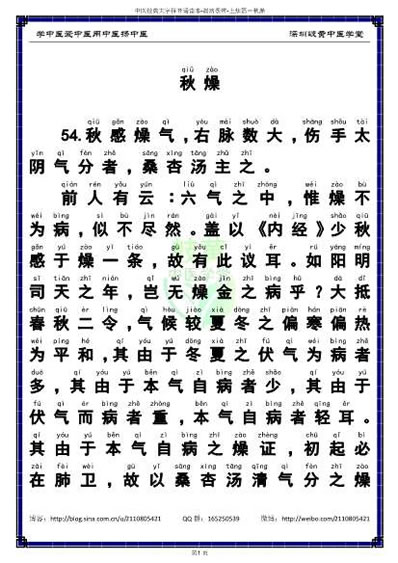 学中医爱中医用中医扬中医
深圳岐黄中医学堂
qiū zào
秋燥
qiū gǎn zào qì yòu mài shuò dà shāng shǒu tài
54.秋感燥气,右脉数大,伤手太
yīn qì fēn zhě sāng xìng tāng zhǔ zhī
阴气分者,桑杏汤主之。
qián rén yǒu yún liù qì zhī zhōng wéi zào bù
前人有云:六气之中,惟燥不
wéi bìng sì bù jìn rán gài yǐ nèi jīng shǎo qiū
为病,似不尽然。盖以《内经》少秋
gǎn yú zào yì tiáo gù yǒu cǐ yì ěr rú yáng míng
感于燥一条,故有此议耳。如阳明
sī tiān zhī nián qǐ wú zào jīn zhī bìng hū dà dǐ
司天之年,岂无燥金之病乎?大抵
chūn qiū èr lìng qì hòu jiào xià dōng zhī piān hán piān rè
春秋二令,气候较夏冬之偏寒偏热
wéi píng hé qí yóu yú dōng xià zhī fú qì wéi bìng zhě
为平和,其由于冬夏之伏气为病者
duō qí yóu yú běn qì zì bìng zhě shǎo qí yóu yú
多,其由于本气自病者少,其由于
fú qì ér bìng zhě zhòng běn qì zì bìng zhě qīng ěr
伏气而病者重,本气自病者轻耳。
qí yóu yú běn qì zì bìng zhī zào zhèng chū qǐ bì
其由于本气自病之燥证,初起必
zài fèi wèi gù yǐ sāng xìng tāng qīng qì fēn zhī zào
在肺卫,故以桑杏汤清气分之燥
博客:http://blog.sina.com.cn/u/2110805421 QQ 群:165250539 微博:http://weibo.com/2110805421